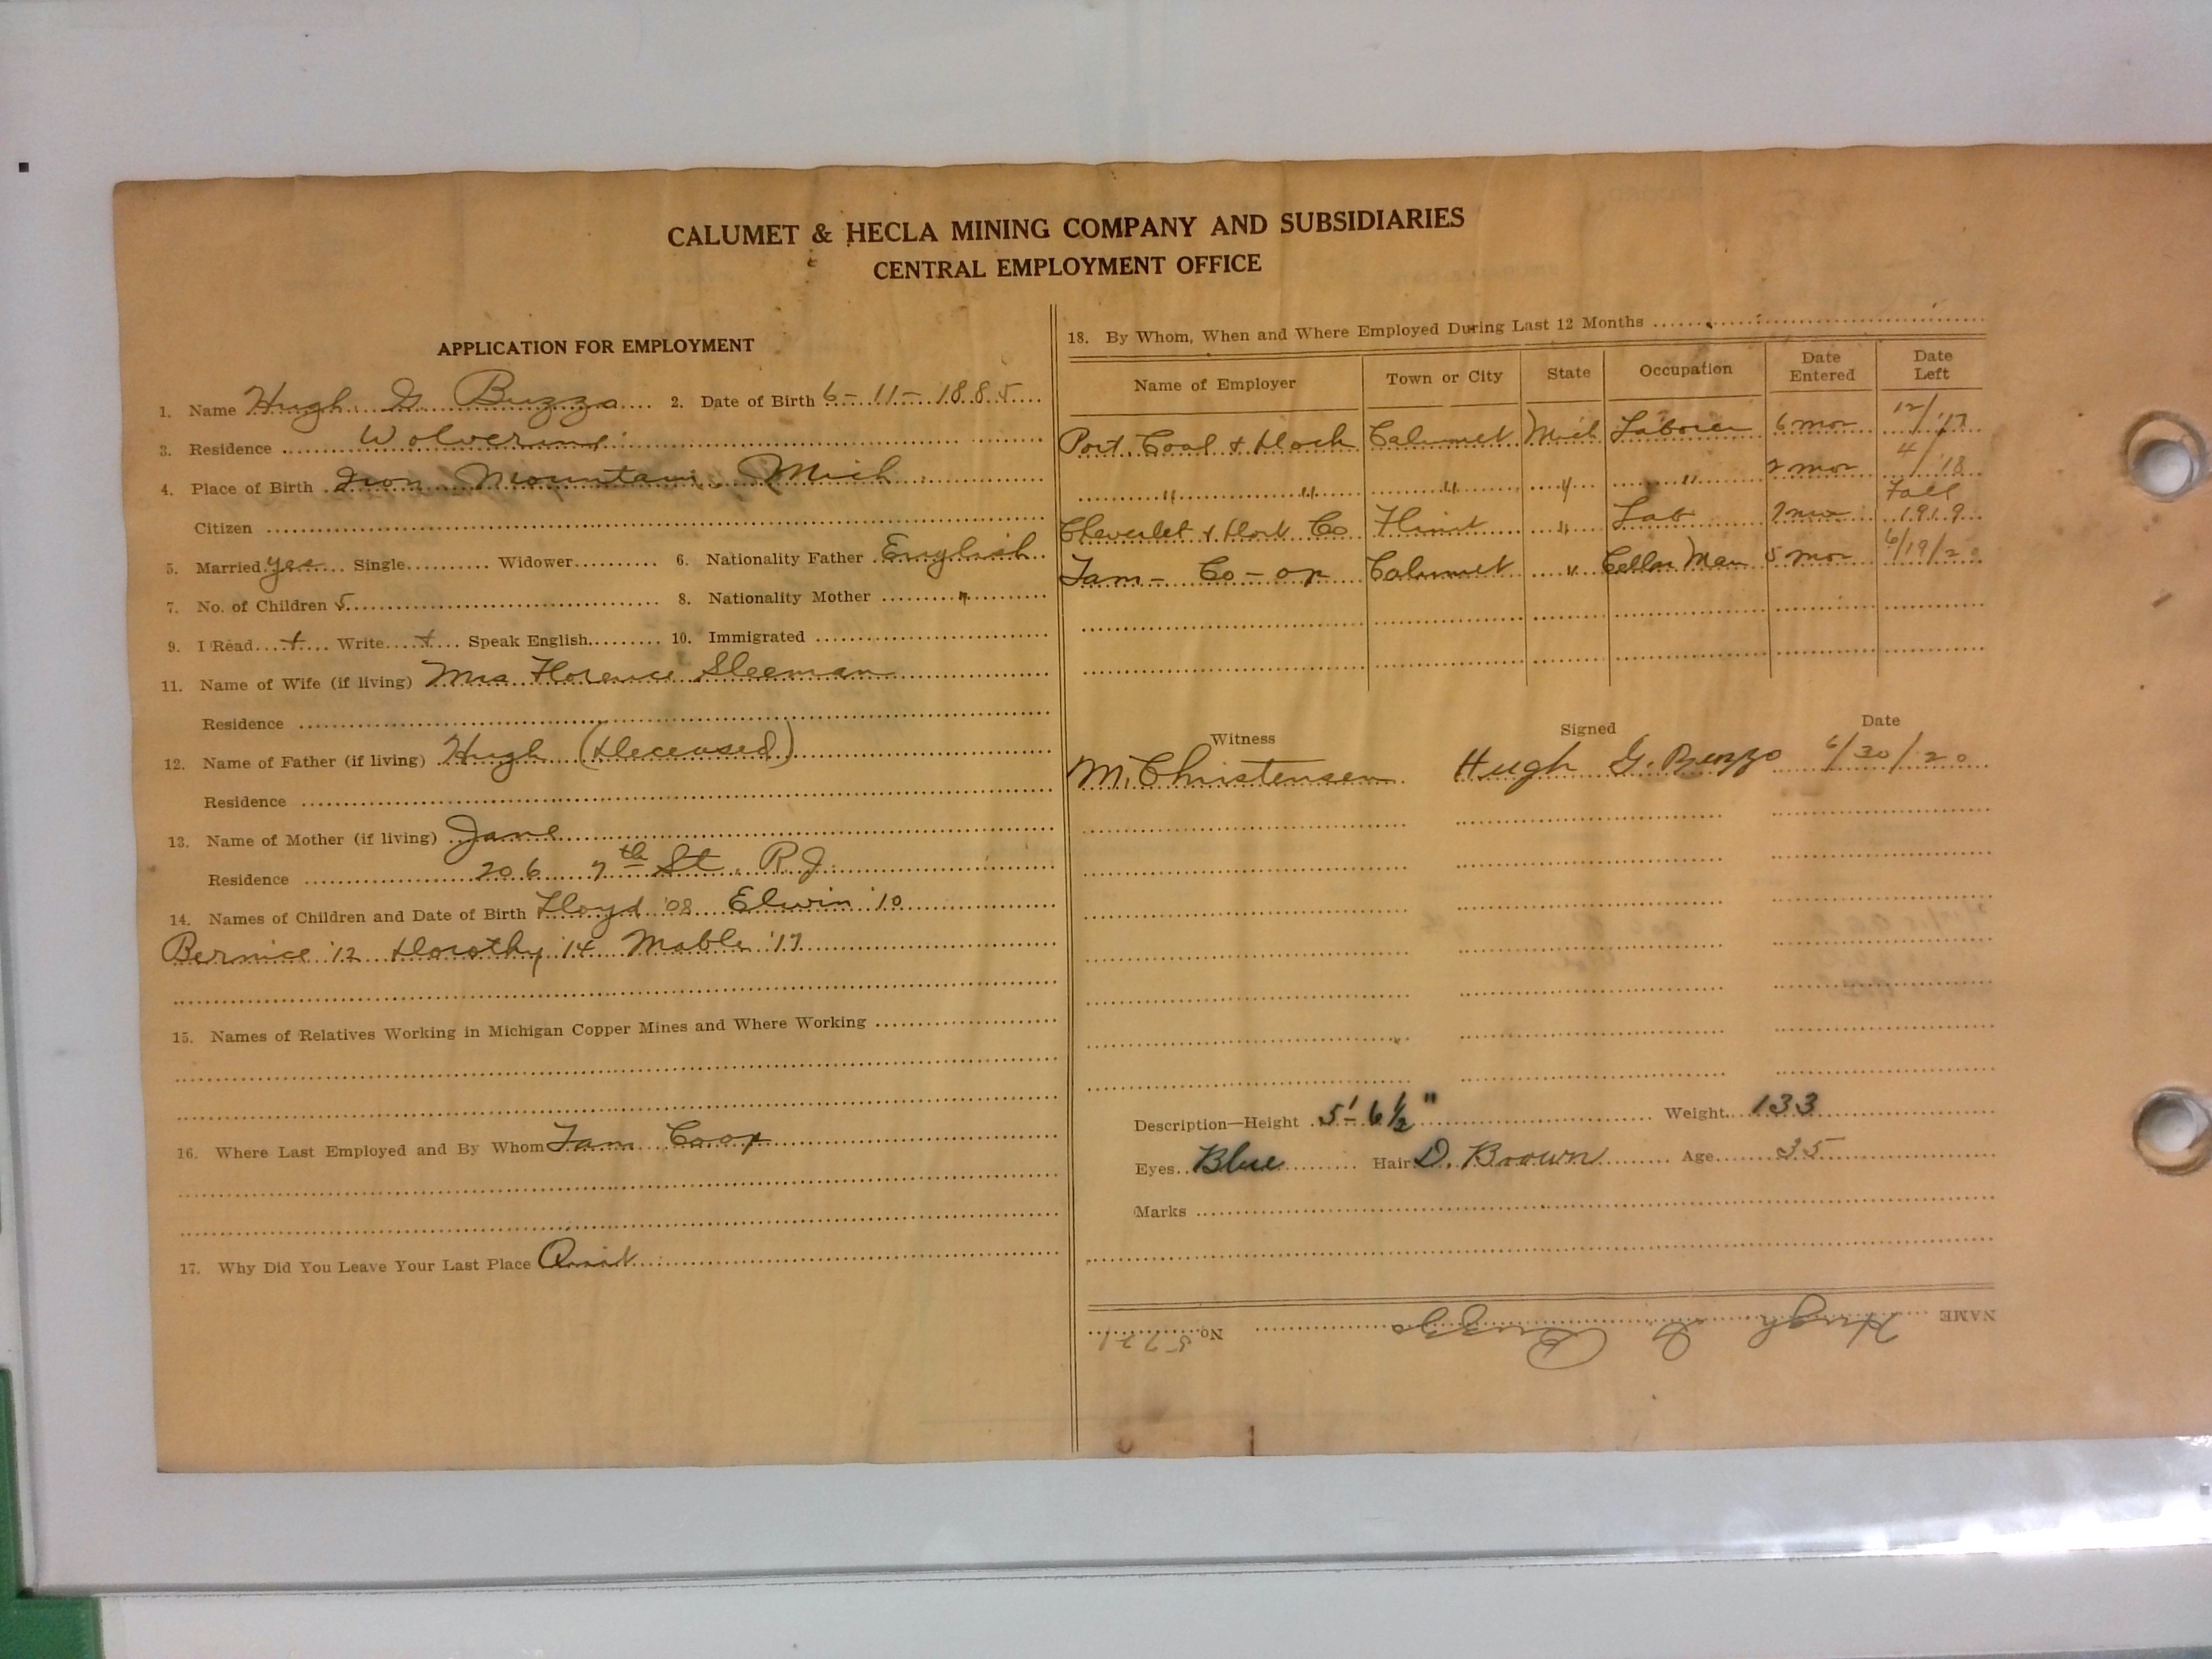 CALUMET & HECLA MINING COMPANY AND SUBSIDIARIES
CENTRAL EMPLOYMENT OFFICE
APPLICATION FOR EMPLOYMENT
1. Name Hugh G. Buzzo 2. Date of Birth 6-11-1885
3. Residence Wolverine
4. Place of Birth Iron Mountain, Mich
Citizen
5. Married yes Single Widower 6. Nationality Father English
7. No. of Children 5 8. Nationality Mother "
9. I Read + Write + Speak English 10. Immigrated
11. Name of Wife (if living) Mrs Florence Sleeman
Residence
12. Name of Father (if living) Hugh (Deceased)
Residence
13. Name of Mother (if living) Jane
Residence 206 7th St. R.J.
14. Names of Children and Date of Birth Lloyd '08 Elwin '10
Bernice '12 Dorothy '14 Mable '17
15. Names of Relatives Working in Michigan Copper Mines and Where Working
16. Where Last Employed and By Whom Tam Co-op
17. Why Did You Leave Your Last Place Quit
18. By Whom, When and Where Employed During Last 12 Months
Name of Employer Town or City State Occupation Date Entered Date Left
Port. Coal & Dock Calumet Mich Laborer 6 mos 12/'17
" " " " " 2 mos 4/'18
Cheverlet & Dort Co Flint " Lab Fall 1919
Tam- Co-op Calumet " Cellar Man 5 mos 6/19/20
Witness Signed Date
M. Christensen Hugh G. Buzzo 6/30/20
Description—Height 5'-6½" Weight 133
Eyes Blue Hair D. Brown Age 35
Marks
NAME Hugh G Buzzo No. 5721